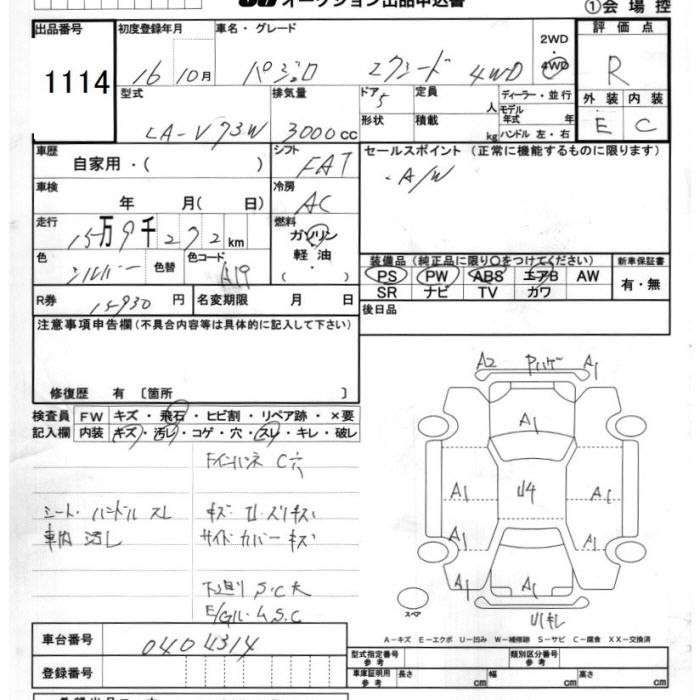 オークション出品申込書
①会場控
出品番号 1114
初度登録年月 16 10月
車名・グレード パジェロ エクシード 4WD
2WD・4WD
評価点 R
外装 E 内装 C
型式 LA-V73W
排気量 3000cc
ドア 5
形状
定員 人
積載 kg
ディーラー・並行
モデル年式 年式
ハンドル 左・右
車歴 自家用・( )
シフト FAT
セールスポイント (正常に機能するものに限ります)
・A/W
車検 年 月( 日)
冷房 AC
走行 15万9千272km
燃料 ガソリン・軽油・( )
色 シルバー 色替 色コード A19
装備品 (純正品に限り〇をつけてください) 新車保証書
PS PW ABS エアB AW 有・無
SR ナビ TV カワ
R券 15930円 名変期限 月 日
後日品
注意事項申告欄(不具合内容等は具体的に記入して下さい)
修復歴 有 〔箇所 〕
検査員記入欄
FW キズ・飛石・ヒビ割・リペア跡・×要
内装 キズ・汚れ・コゲ・穴・スレ・キレ・破レ
シート・ハンドル スレ
車内 汚レ
C穴
サイドカバー キズ
下廻り S.C大
S.C
A2 A1
A1
A1 U4 A1
A1 A1
A1 A1 A1
スペア
A-キズ E-エクボ U-凹み W-補修跡 S-サビ C-腐食 XX-交換済
車台番号 0404314
型式指定番号 参考 類別区分番号 参考
登録番号
車庫証明用 参考 長さ cm 幅 cm 高さ cm